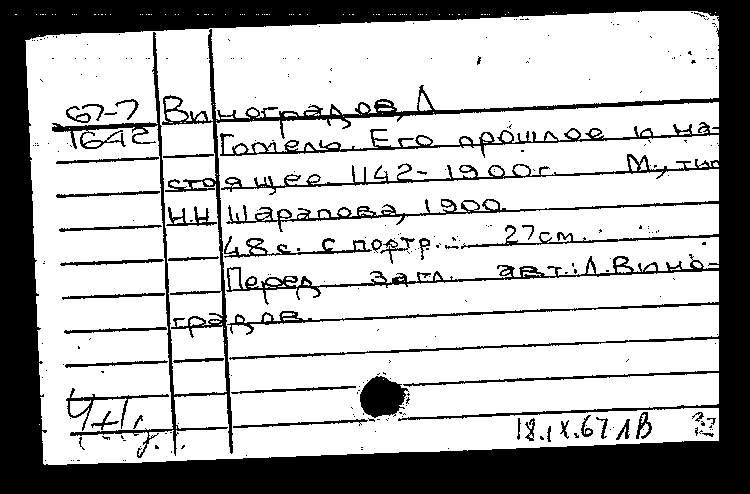 67-7 Виноградов, Л
1642 Гомель. Его прошлое и на-
стоящее. 1142-1900г. М., тип
Н.Н Шарапова, 1900.
48 с. с портр. 27см.
Перед загл. авт.: Л.Вино-
градов.
18.IX.67 ЛВ